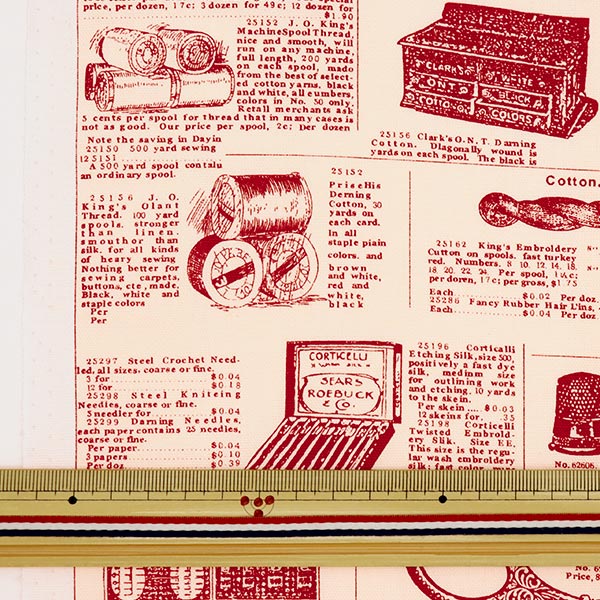 price, per dozen, 17c; 3 dozen for 49c; 12 dozen for
$1.90
25152 J. O. King's
Machine Spool Thread,
nice and smooth, will
run on any machine,
full length, 200 yards
on each spool, made
from the best of select-
ed cotton yarns, black
and white, all eumbers,
colors in No. 50 only.
Retail merchants ask
5 cents per spool for thread that in many cases is
not as good. Our price per spool, 2c; per dozen
Note the saving in Dayin
25150 500 yard sewing
125151
A 500 yard spool containu
an ordinary spool.
CLARK'S
WHITE
O.N.T
BLACK
COLORS
25156 Clark's O. N. T. Darning
Cotton. Dlagonally wound is
yards on each spool. The black is
25156 J. O.
King's Giant
Thread. 100 yard
spools. stronger
than linen.
smouthor than
silk. for all kinds
of heary sewing
Nothing better for
sewing carpets,
buttons, cte, made,
Black, white and
staple colors
Per
Per
25152
PriseHis
Derning
Cotton, 30
yards on
each card.
In all
staple plain
colors. and
brown
and white,
red and
white,
black
Cotton.
25162 King's Embroidery
Cutton on spools. fast turkey
red. Numbers, 8 10. 12. 14. 18.
18. 20. 22. 24. Per spool, 1½c;
per doren, 17c; per gross, $1.75
Each $0.02 Per doz.
25286 Fancy Rubber Hair L'ins, 4
Each $0.04 Per doz.
25297 Steel Crochet Need-
led, all sizes. coarse or fine.
3 for $0.04
12 for $0.18
25298 Steel Kniteing
Needles, coarse or fine.
5 needler for $0.04
25299 Darning Needles,
each paper contains 25 needles,
coarse or fine.
Per paper $0.04
3 papers $0.10
Per doz. $0.39
CORTICELLI
SEARS
ROEBUCK
& Co.
25196 Corticalli
Etching Silk, size 500,
positively a fast dye
silk, medium size
for outlining work
and etching. 10 yards
to the skein.
Per skein $0.03
12 skeins for. .35
25198 Corticelli
Twisted Embroid-
ery Silk. Size EE,
This size is the regu-
lar wash embroidery
silk; fast color, pure
No. 62606.
Price, 8